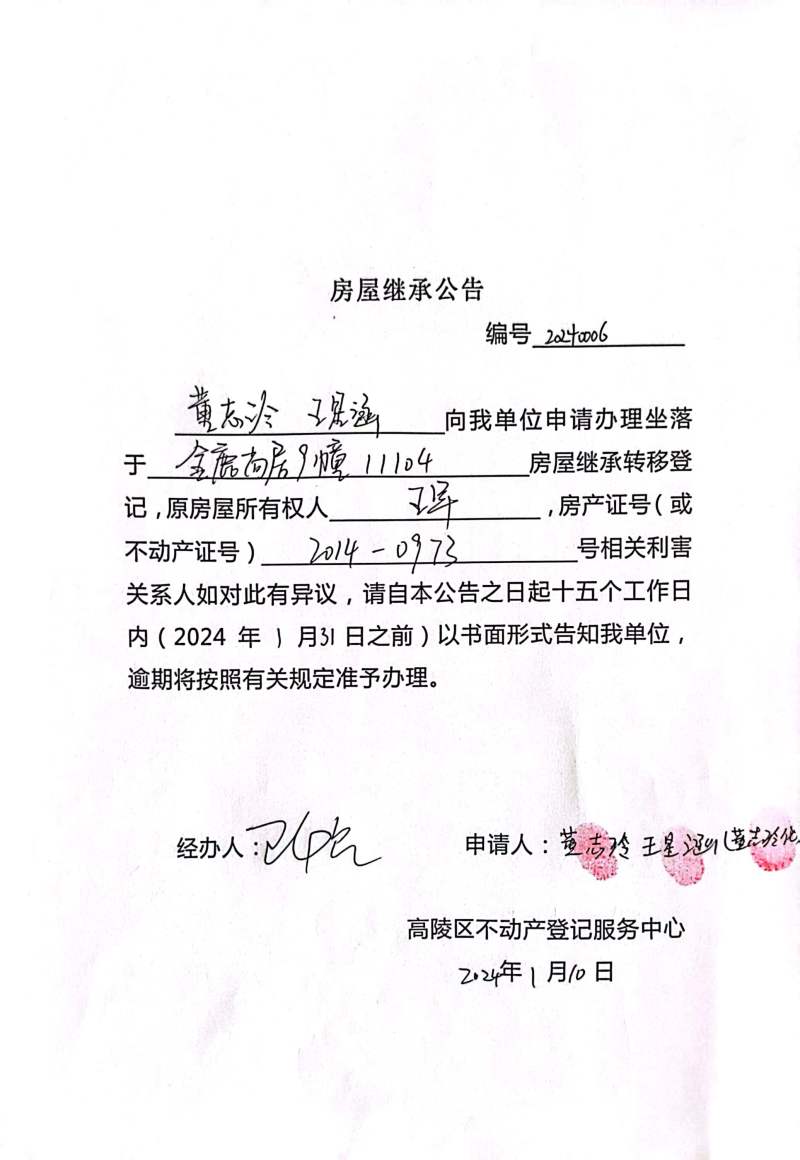 房屋继承公告
编号 20240006
黄志玲 王星涵 向我单位申请办理坐落
于 金鹿尚居9幢 11104 房屋继承转移登
记，原房屋所有权人 王军 ，房产证号（或
不动产证号） 2014-0973 号相关利害
关系人如对此有异议，请自本公告之日起十五个工作日
内（2024 年 1 月31日之前）以书面形式告知我单位，
逾期将按照有关规定准予办理。
经办人： 申请人：黄志玲 王星涵(黄志玲代
高陵区不动产登记服务中心
2024年 1 月10 日